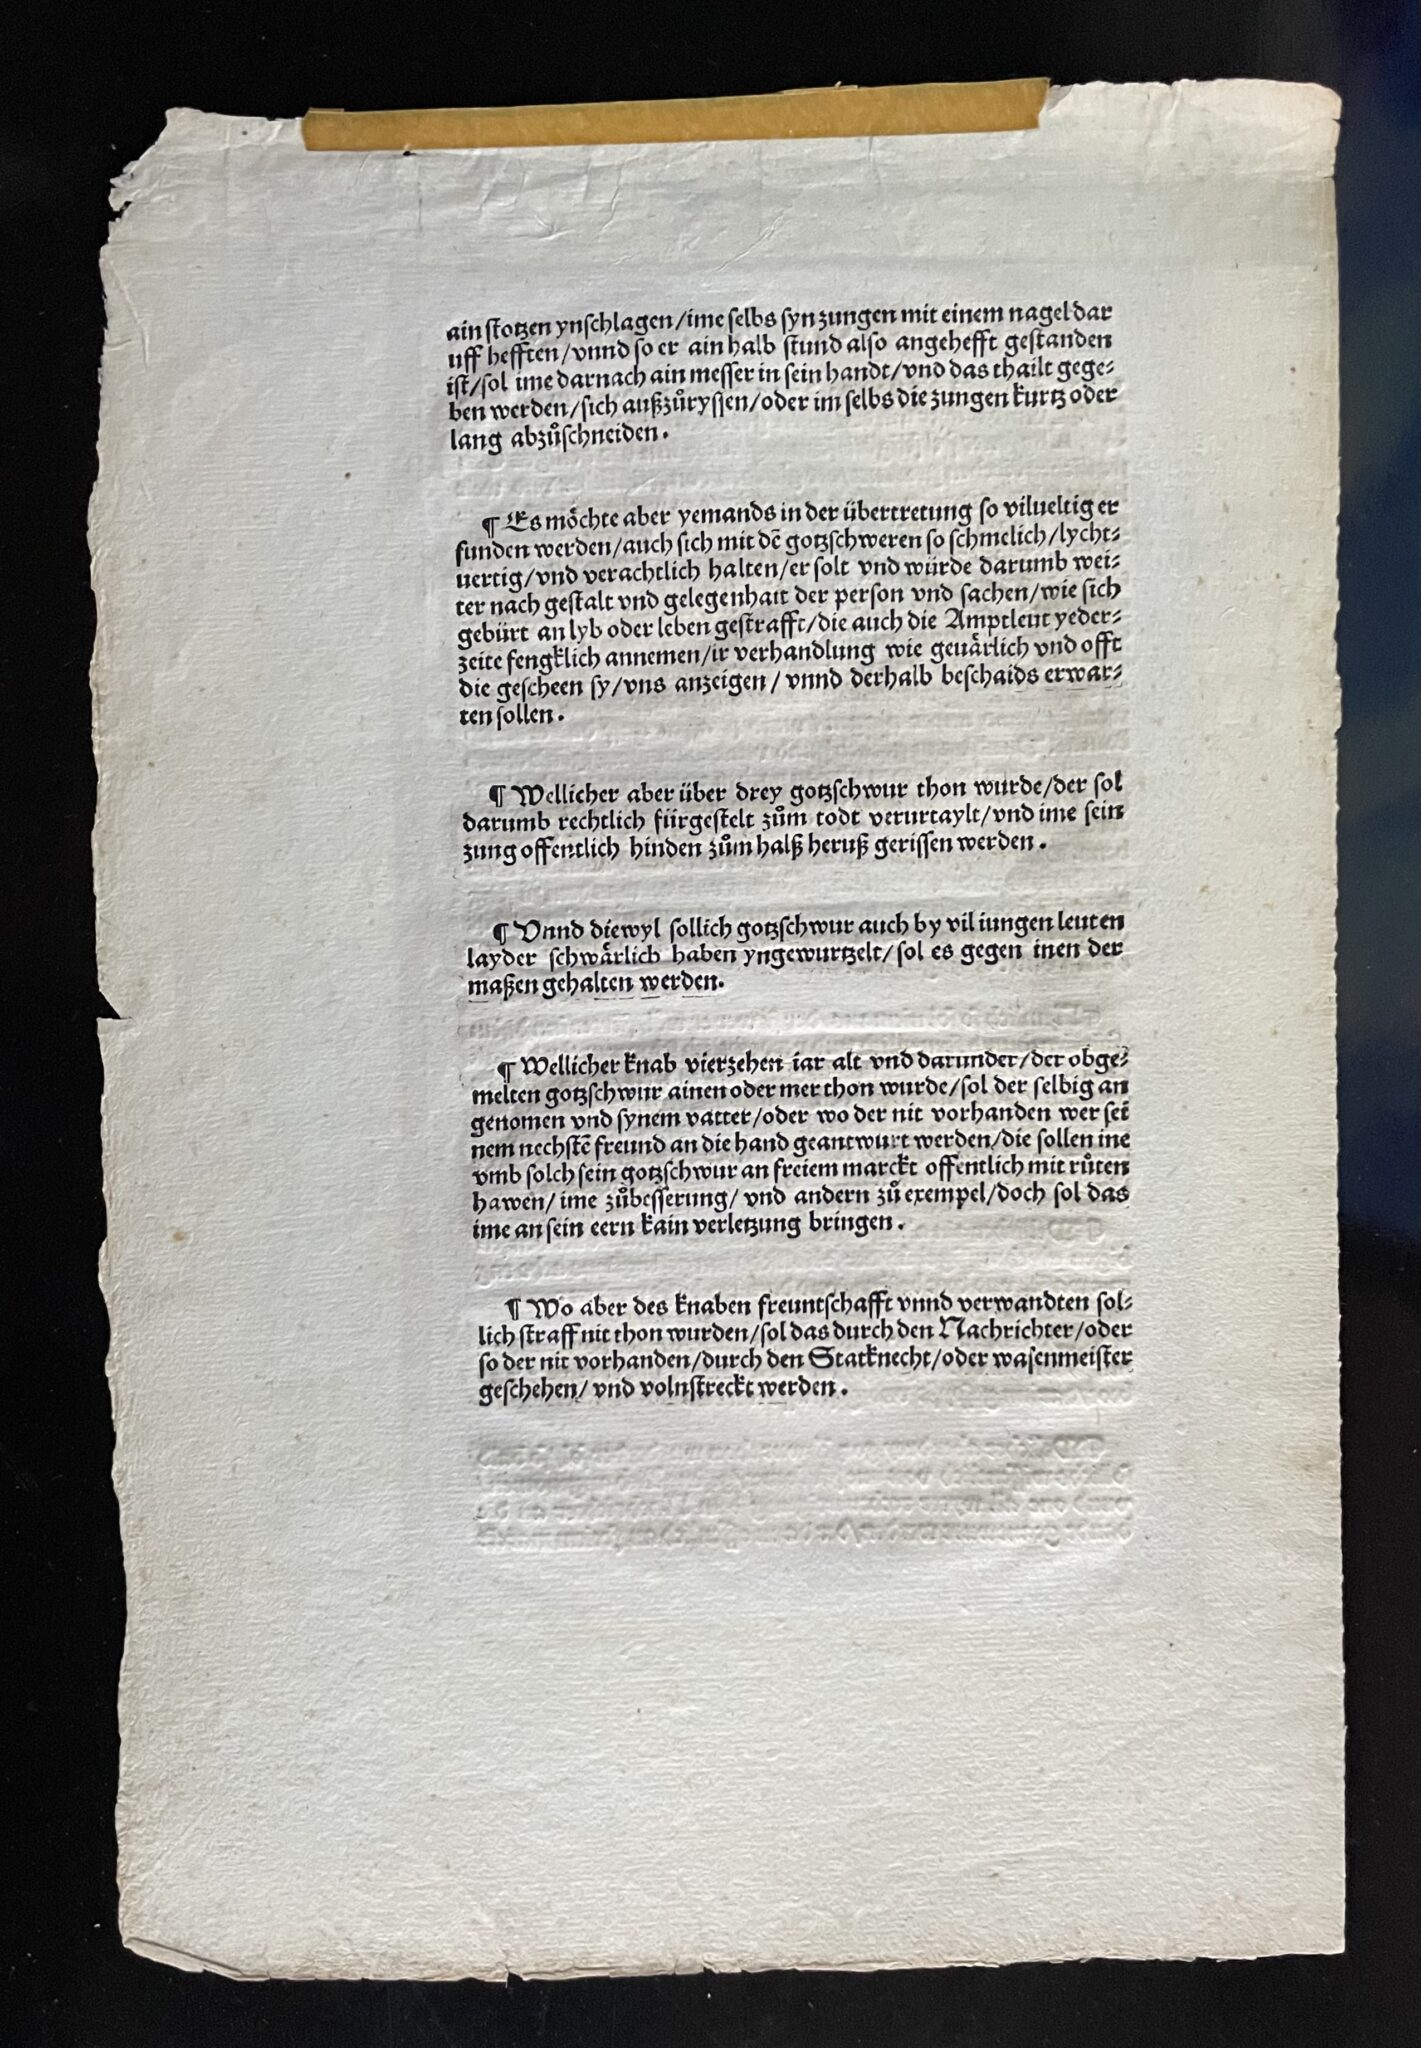 ain stotzen ynschlagen/ime selbs syn zungen mit einem nagel dar
uff hefften/vnnd so er ain halb stund also angehefft gestanden
ist/sol ime darnach ain messer in sein handt/vnd das thailt gege⸗
ben werden/sich außzůryssen/oder im selbs die zungen kurtz oder
lang abzůschneiden.
¶ Es möchte aber yemands in der übertretung so vilueltig er
funden werden/auch sich mit dē gotzschweren so schmelich/lycht⸗
uertig/vnd verachtlich halten/er solt vnd würde darumb wei⸗
ter nach gestalt vnd gelegenhait der person vnd sachen/wie sich
gebürt an lyb oder leben gestrafft/die auch die Amptleut yeder⸗
zeite fengklich annemen/ir verhandlung wie geuärlich vnd offt
die gescheen sy/vns anzeigen/vnnd derhalb beschaids erwar⸗
ten sollen.
¶ Wellicher aber über drey gotzschwur thon wurde/der sol
darumb rechtlich fürgestelt zům todt verurtaylt/vnd ime sein
zung offentlich hinden zům halß heruß gerissen werden.
¶ Vnnd diewyl sollich gotzschwur auch by vil iungen leuten
layder schwärlich haben yngewurtzelt/sol es gegen inen der
maßen gehalten werden.
¶ Wellicher knab vierzehen iar alt vnd darunder/der obge⸗
melten gotzschwur ainen oder mer thon wurde/sol der selbig an
genomen vnd synem vatter/oder wo der nit vorhanden wer sei
nem nechstē freund an die hand geantwurt werden/die sollen ine
vmb solch sein gotzschwur an freiem marckt offentlich mit růten
hawen/ime zůbesserung/vnd andern zů exempel/doch sol das
ime an sein eern kain verletzung bringen.
¶ Wo aber des knaben freuntschafft vnnd verwandten sol⸗
lich straff nit thon wurden/sol das durch den Nachrichter/oder
so der nit vorhanden/durch den Statknecht/oder wasenmeister
geschehen/vnd volnstreckt werden.